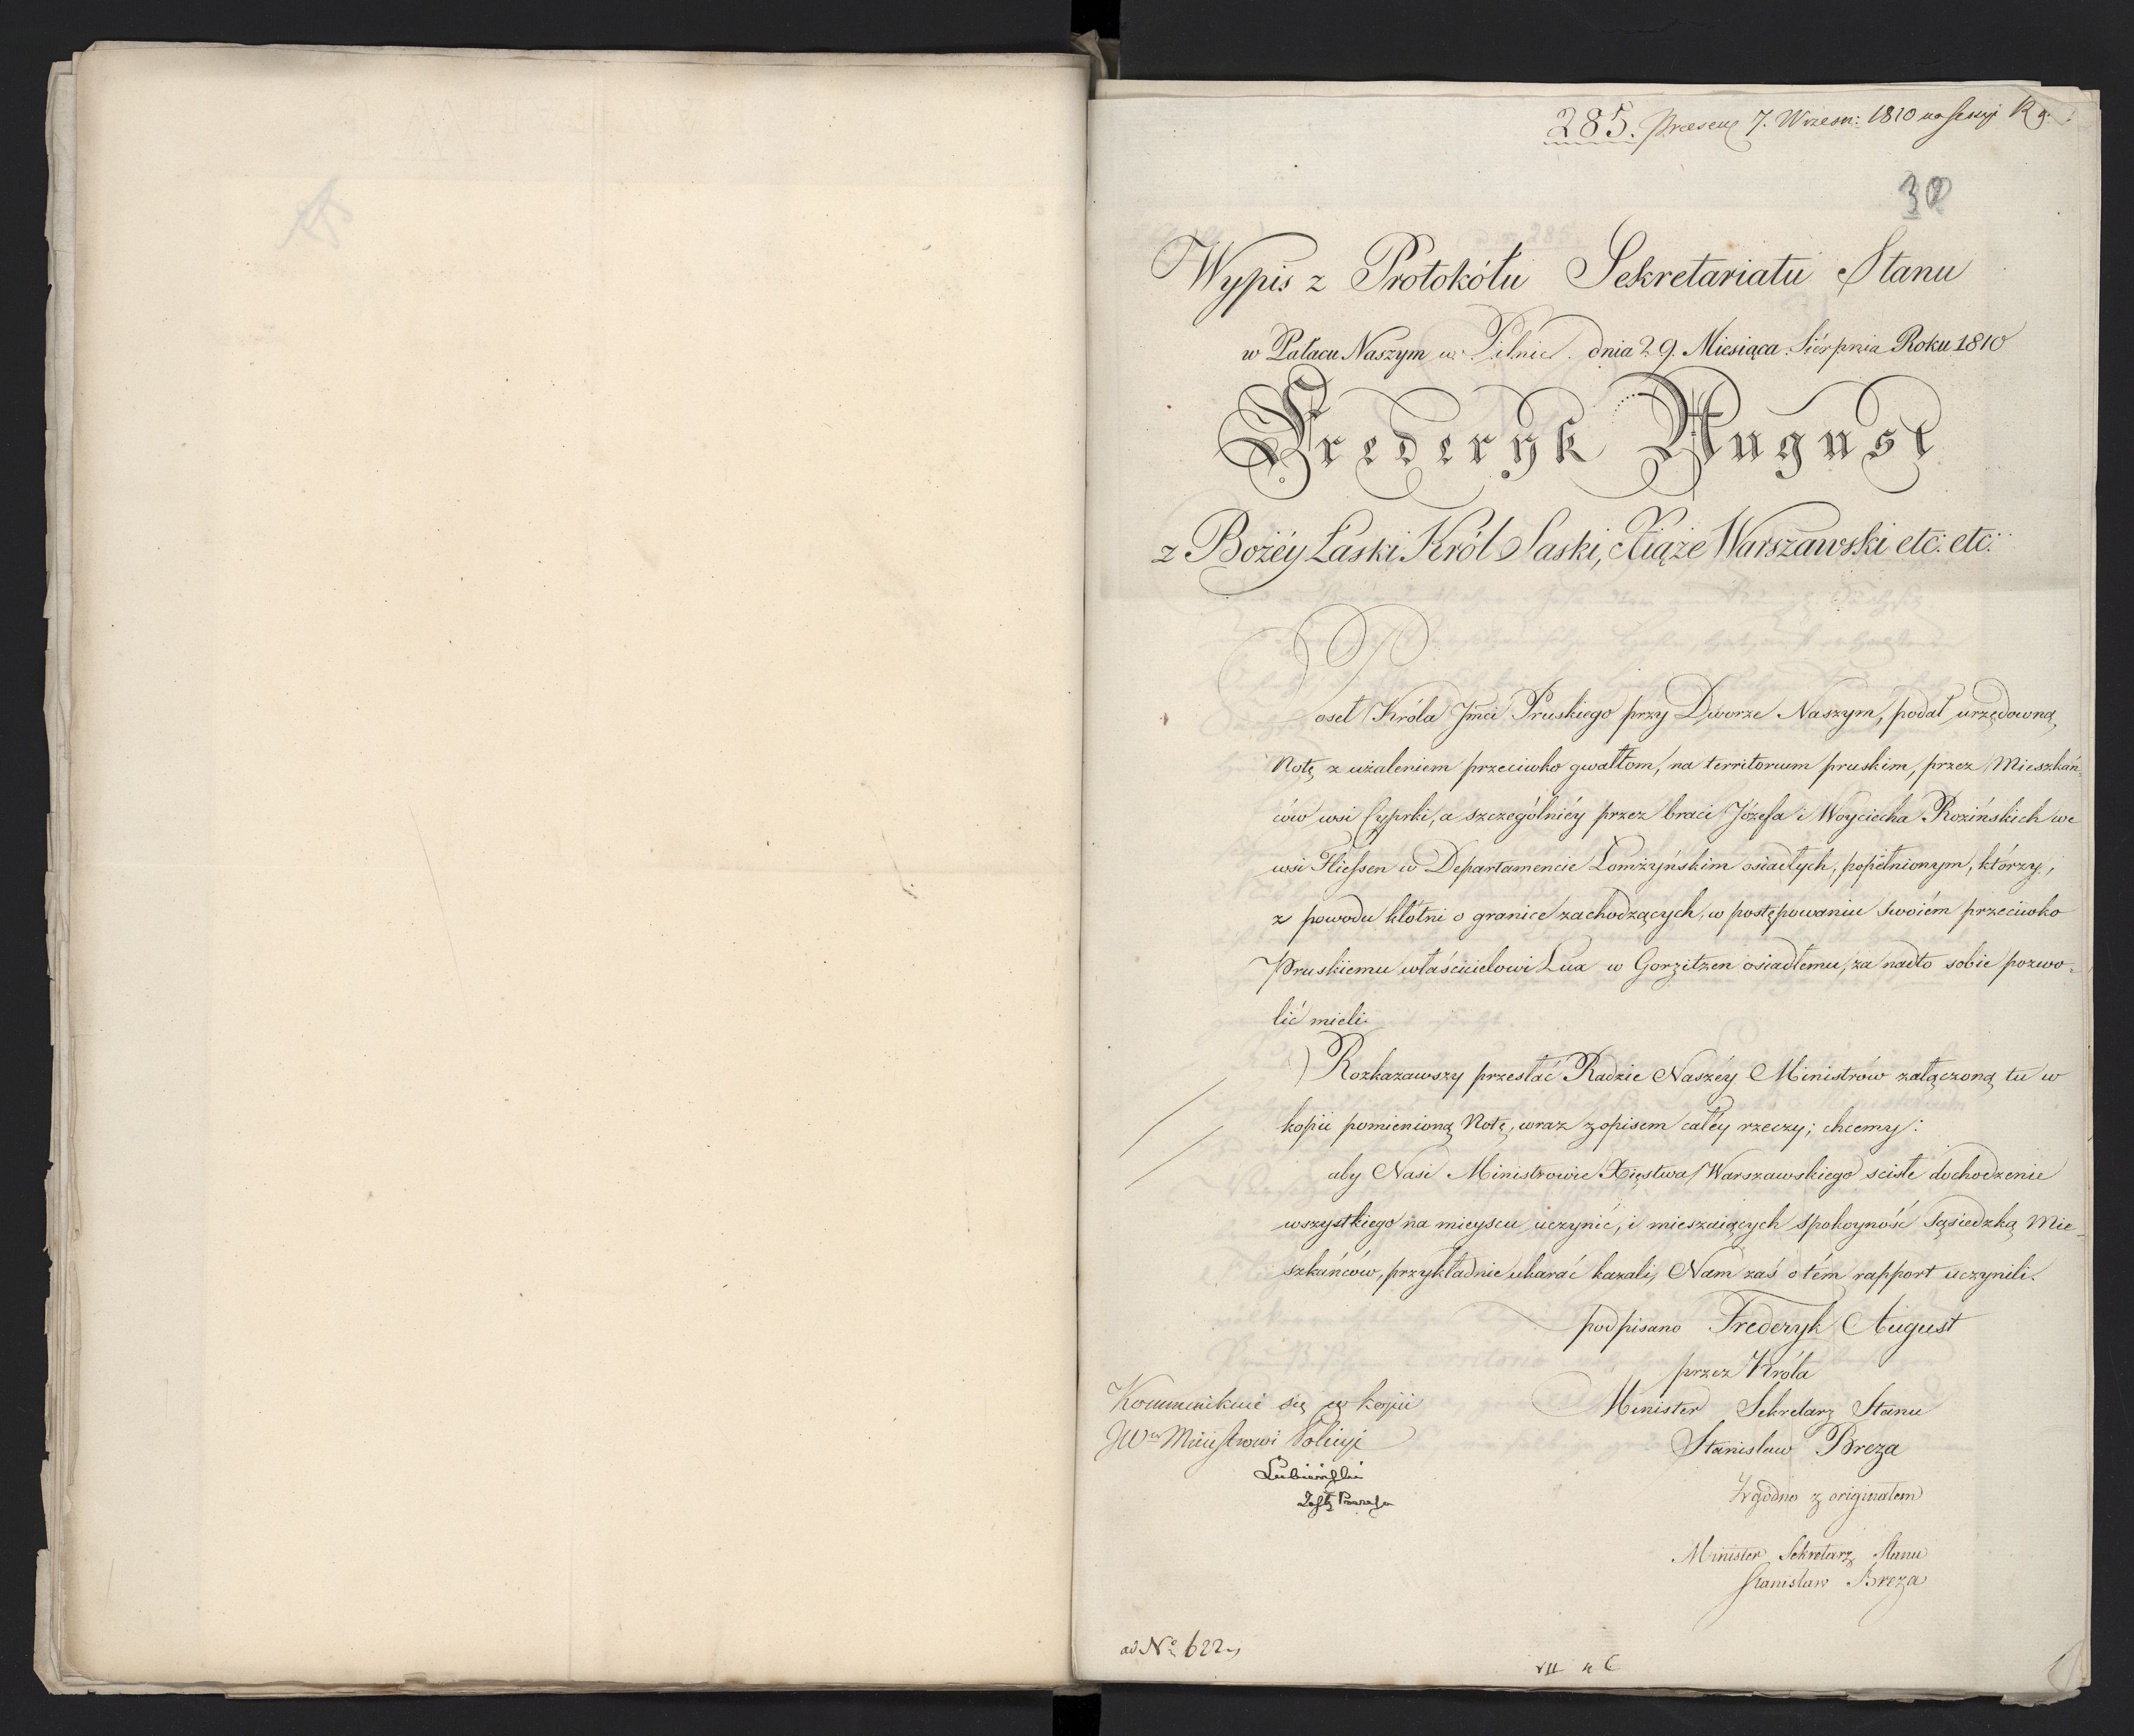 285. Praesent 7. Wrzesn: 1810 na Sessyi
30
Wypis z Protokółu Sekretariatu Stanu
w Pałacu Naszym w Pilnic. dnia 29. Miesiąca Sierpnia Roku 1810
Frederyk August
z Bożéy Łaski Król Saski, Xiąże Warszawski etc: etc:
Poseł Króla Jmci Pruskiego przy Dworze Naszym, podał urzędowną
Notę z użaleniem przeciwko gwałtom, na territorium pruskim, przez Mieszkań-
ców wsi Cyprki, a szczególniéy przez braci Józefa i Woyciecha Rozińskich we
wsi Fliessen w Departamencie Łomżyńskim osiadłych, popełnionym, którzy,
z powodu kłótni o granice zachodzących, w postępowaniu swoiém przeciwko
Pruskiemu właścicielowi Lux w Gorzitzen osiadłemu, za nadto sobie pozwo-
lić mieli.
Rozkazawszy przesłać Radzie Naszéy Ministrów załączoną tu w
kopii pomienioną Notę, wraz z opisem całéy rzeczy; chcemy:
aby Nasi Ministrowie Xięstwa Warszawskiego scisłe dochodzenie
wszystkiego na mieyscu uczynić, i mieszaiących spokoyność sąsiedzką Mie-
szkańców, przykładnie ukarać kazali, Nam zaś o tém rapport uczynili.
podpisano Frederyk August
przez Króla
Minister Sekretarz Stanu
Stanisław Breza
Zgodno z originałem
Minister Sekretarz Stanu
Stanisław Breza
Kommunikuie się w kopii
JWu Ministrowi Policyi
Lubieński
ad No 622
VII